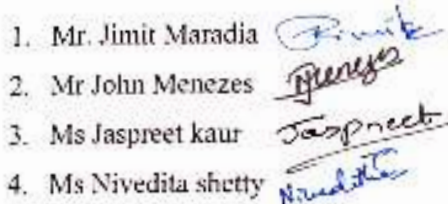 1. Mr. Jimit Maradia Jimit
2. Mr John Menezes Menezes
3. Ms Jaspreet kaur Jaspreet
4. Ms Nivedita shetty Niveditha